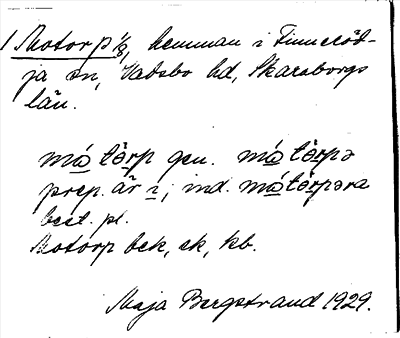 1 Motorp 1/8, hemman i Finneröd-
ja sn, Vadsbo hd, Skaraborgs
län.
má tö̀rp gen. má tö̀rpə
prep. är i; ind. má tö̀rpəra
best. pl.
Motorp bck, ek, kb.
Maja Bergstrand 1929.